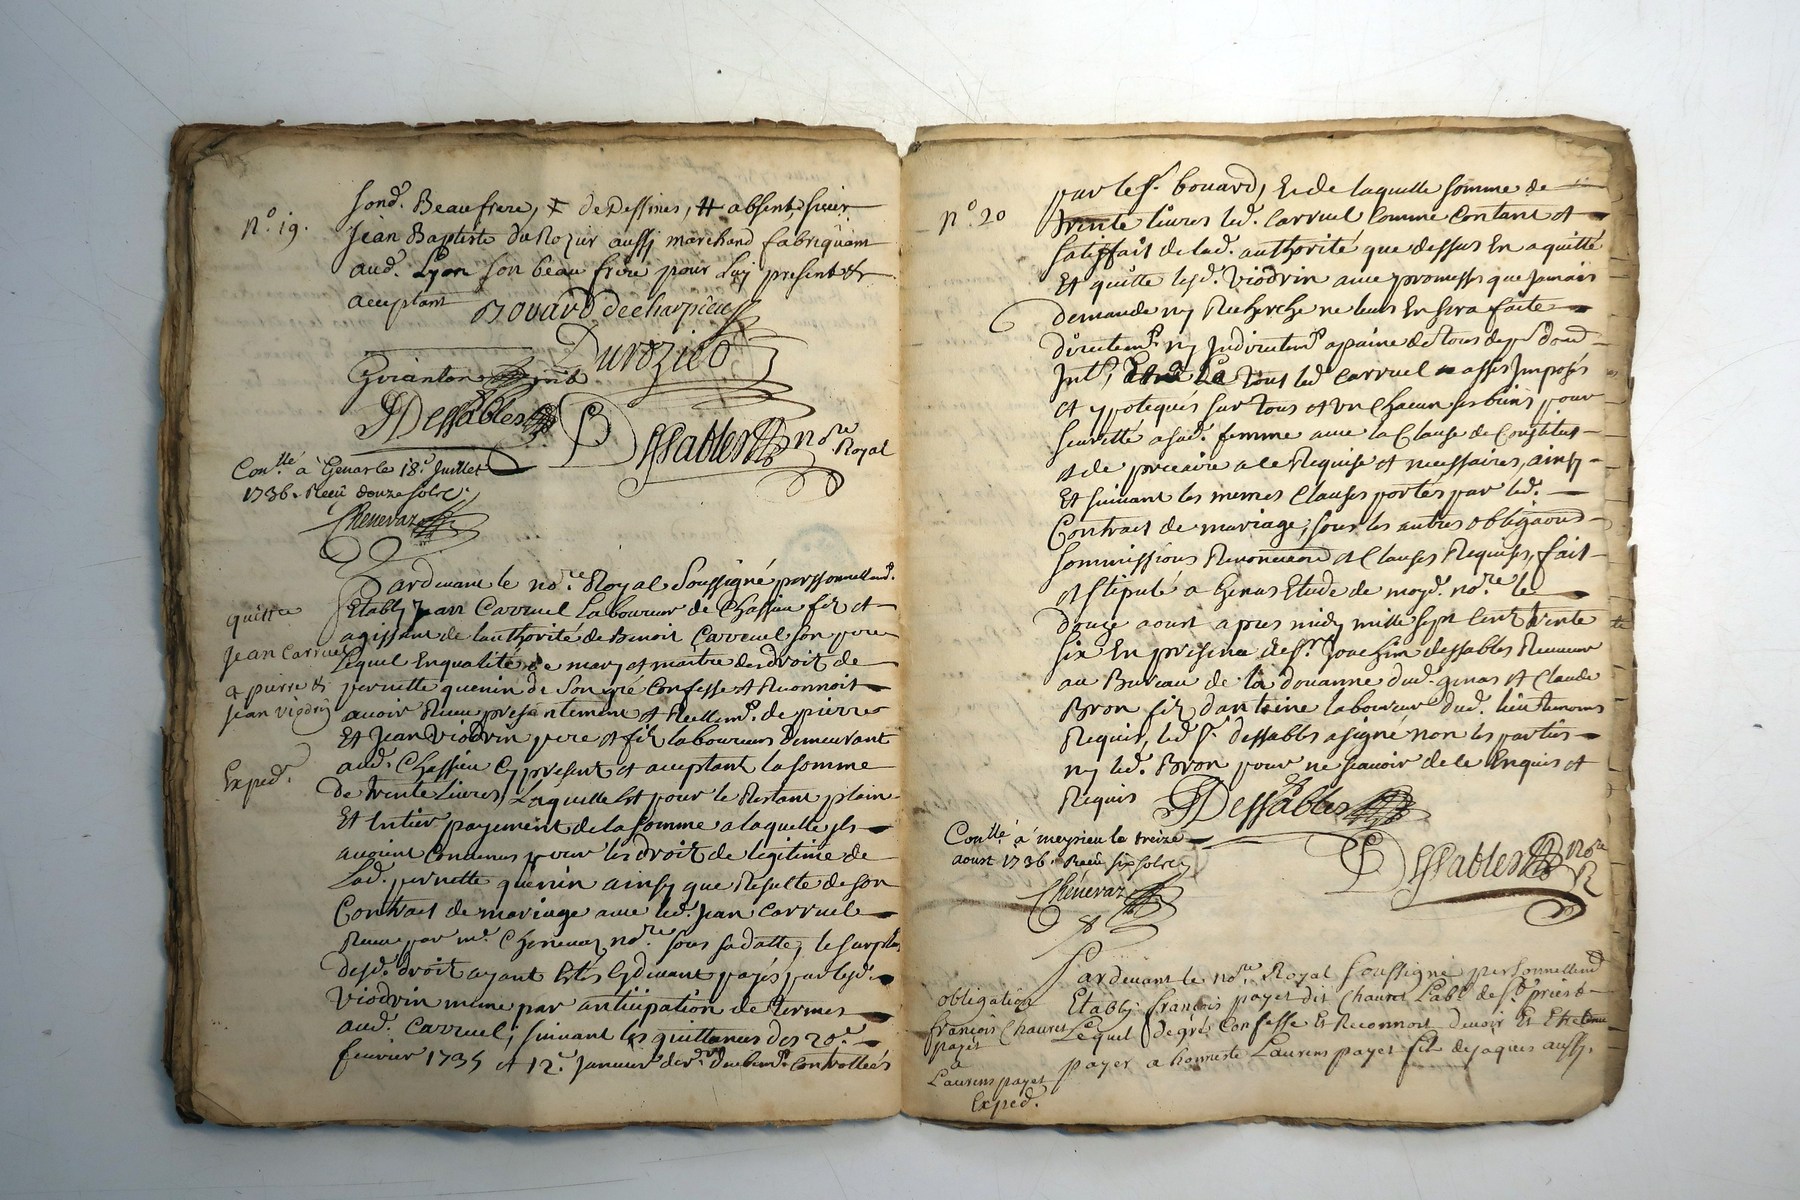 N.o 19.
sond. Beaufrere, ‡ de Dessines, ‡‡ absent, sieur
Jean Baptiste Du Rozier aussy marchand fabriquant
aud. Lyon son beau frere pour Luy present &
acceptant
Bovard decharpieux
Durozier
Guianton
J Dessables
P Dessables no.re Royal
Con.llé à Genas le 18.e Juillet
1736. Receu douze sols
Cheneraz
quittce
Jean Carruel
a pierre &
Jean Viodrin
Exped.
Pardevant le no.re Royal Soussigné personnellem.t
Etably Jean Carruel Laboureur de Chassieu fils et
agissant de lauthorité de Benoit Carruel son pere
Lequel En qualité de mary et maitre des droit de
pernette quenin de Son gré Confesse et Reconnoit
avoir Receu presentement et Reellem.t de pierre
Et Jean Viodrin pere et fils laboureurs demeurant
aud. Chassieu Cy present et acceptant la somme
de trente Livres, Laquelle Est pour le Restant plain
Et Entier payement de la somme a laquelle ils
avoient Convenus pour les droit de legitime de
Lad. pernette quenin ainsy que Resulte de son
Contract de mariage avec led. Jean Carruel
Receu par m.e Cheneraz no.re sous sa datte, le surplus
desd. droit ayant Estés Cy devant payés par lesd.
Viodrin meme par anticipation de termes
aud. Carruel, suivant les quittances des 20.e
fevrier 1735 et 12.e Janvier der.r duëm.t Controllées
N.o 20
par le S.r bovard, Et de laquelle somme de
trente livres led. Carruel Comme Contant et
satisfait de lad. authorité que dessus En a quitté
Et quitte lesd. Viodrin avec promesse que Jamais
demande ny Recherche ne leurs En sera faite
directem.t ny Indirectem.t a paine de tous dep.s dom.
Int.s, Le tout led Carruel a assés Imposés
et ypotequés sur tous et un Chacun ses biens pour
seurette a sad. femme avec la Clause de Constitut
et de precaire a le Requise et necessaires, ainsy
Et suivant les memes Clauses portés par led.
Contract de mariage, sous les autres obligaons
soummissions Renonceaons et Clauses Requises, fait
et stipulé a Genas Etude de moyd. no.re le
douze aoust apres midy mille sept Cent trente
six En presence de s.r Joachim dessables Receveur
au Bureau de la douanne dud. genas et Claude
Bron fils dantoine laboureur dud. lieu temoins
Requis, led S.r dessables a signé non les parties
ny led. Bron pour ne scavoir de ce Enquis et
Requis
J Dessables
Con.llé à meyzieu le treize
aoust 1736. Receu six sols
Cheneraz
P Dessables no.re R
obligation
françois Chauret
payet
a
Laurens payet
Exped.
Pardevant le no.re Royal Soussigné personnellem.t
Etably françois payet dit Chauret Lab.r de S.t priest
Lequel de gré Confesse Et Reconnoit devoir Et Etre tenu
payer a honneste Laurens payet fils de Jaques aussy